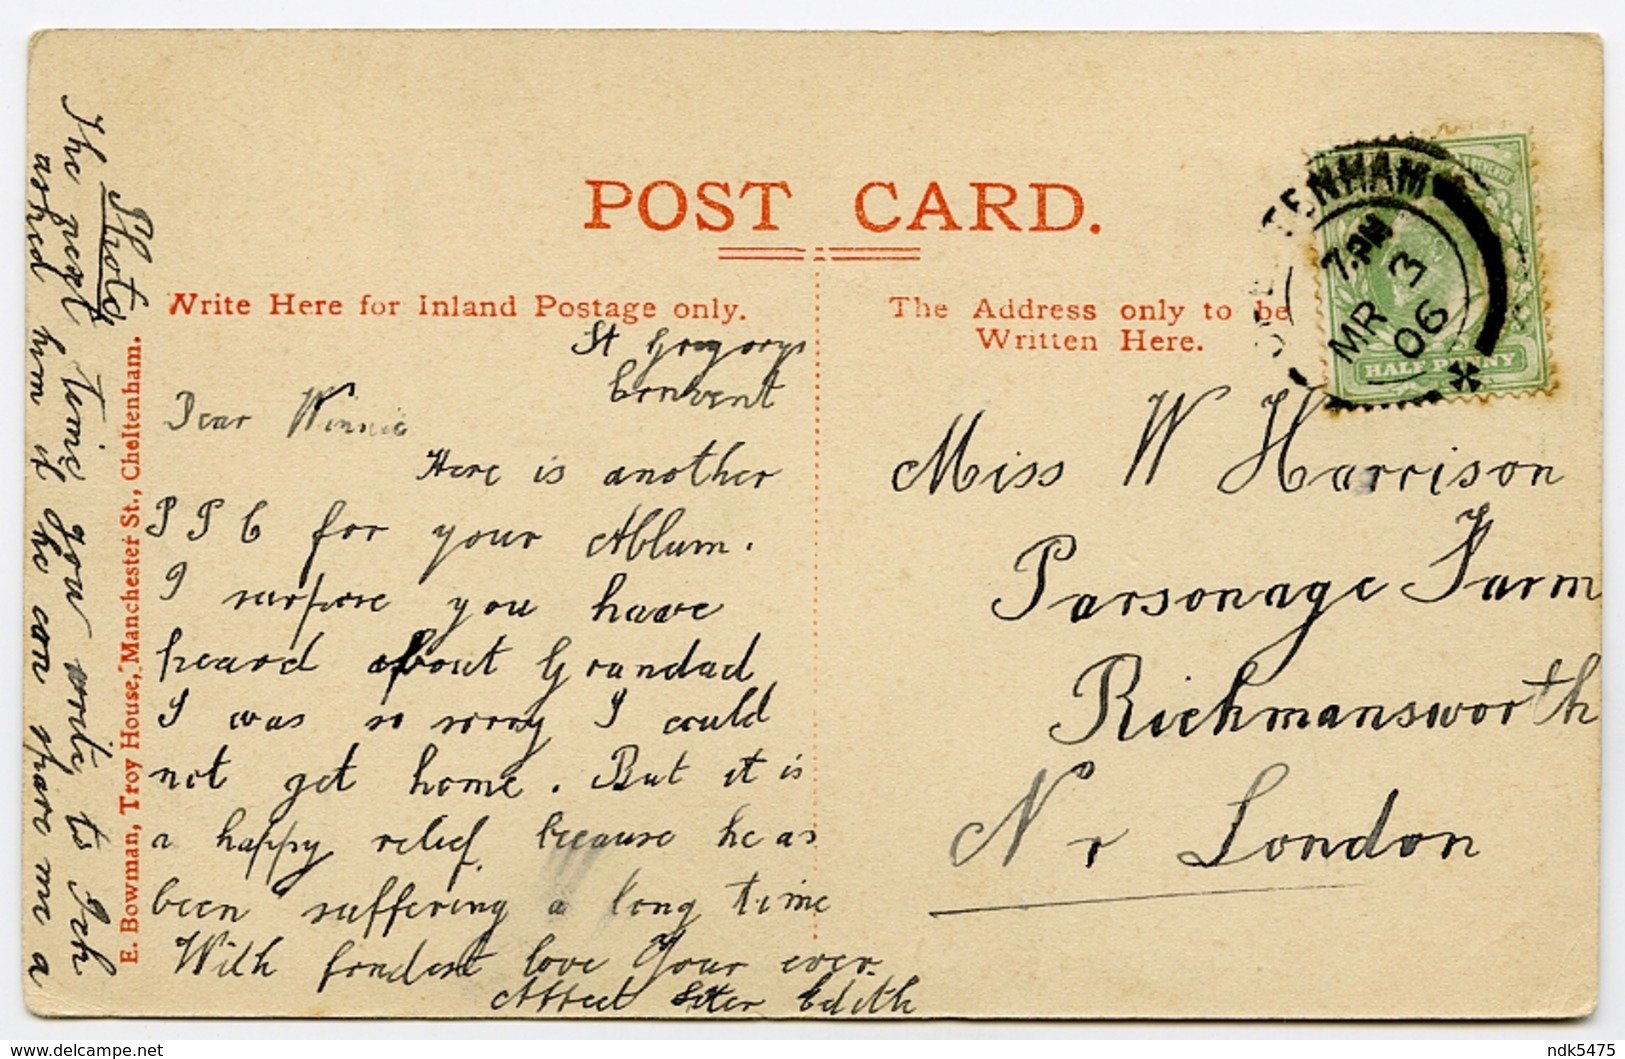 POST CARD.
Write Here for Inland Postage only.
The Address only to be
Written Here.
TENHAM
7.PM
MR 3
06
HALF PENNY
St Gregorys
Convent
Dear Winnie
Here is another
P P C for your Ablum.
I surpose you have
heard about Grandad
I was so sorry I could
not get home. But it is
a happy relief because he as
been suffering a long time
With fondest love Your ever
Affect Sister Edith
Miss W Harrison
Parsonage Farm
Richmansworth
Nr London
The next time you write to
asked him if he can spare me a
Photo
E. Bowman, Troy House, Manchester St., Cheltenham.
delcampe.net
ndk5475